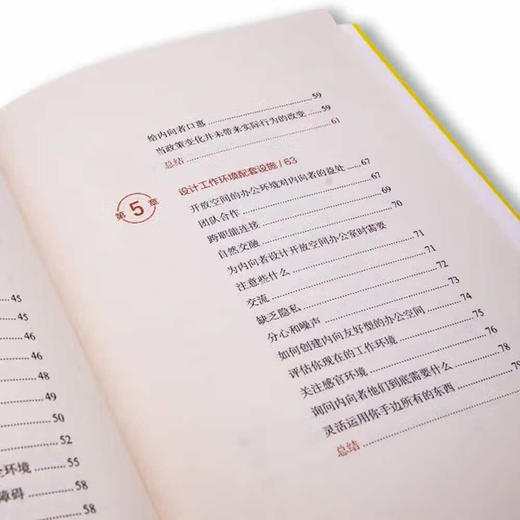 给内向者口惠 59
当政策变化并未带来实际行为的改变 59
总结 61
第5章
设计工作环境配套设施 / 63
开放空间的办公环境对内向者的益处 67
团队合作 67
跨职能连接 69
自然交融 70
为内向者设计开放空间办公室时需要
注意些什么 71
交流 71
缺乏隐私 72
分心和噪声 73
如何创建内向友好型的办公空间 74
评估你现在的工作环境 75
关注感官环境 76
询问内向者他们到底需要什么 78
灵活运用你手边所有的东西 79
总结
45
45
46
46
48
49
50
52
环境 55
障碍 58
58